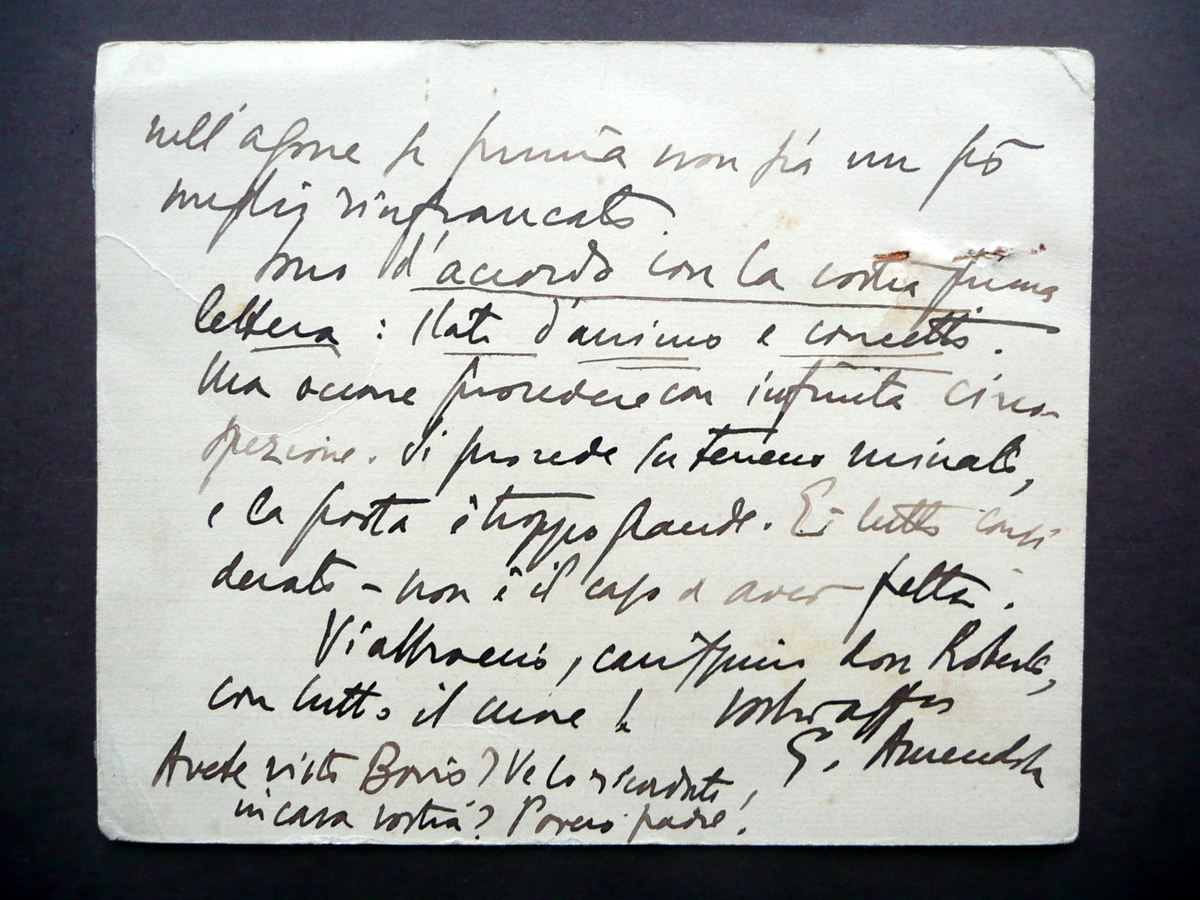 nell'agone se prima non sia un pò
meglio rinfrancato.
Sono d'accordo con la vostra prima
lettera: stati d'animo e concetti.
Ma occorre procedere con infinita circo-
spezione. Si procede su terreno minato,
e la posta è troppo grande. E - tutto consi
derato - non è il caso d'aver fretta.
Vi abbraccio, carissimo don Roberto,
con tutto il cuore! Vostro affmo
G. Amendola
Avete visto Boris? Ve lo ricordate,
in casa vostra? Povero padre!